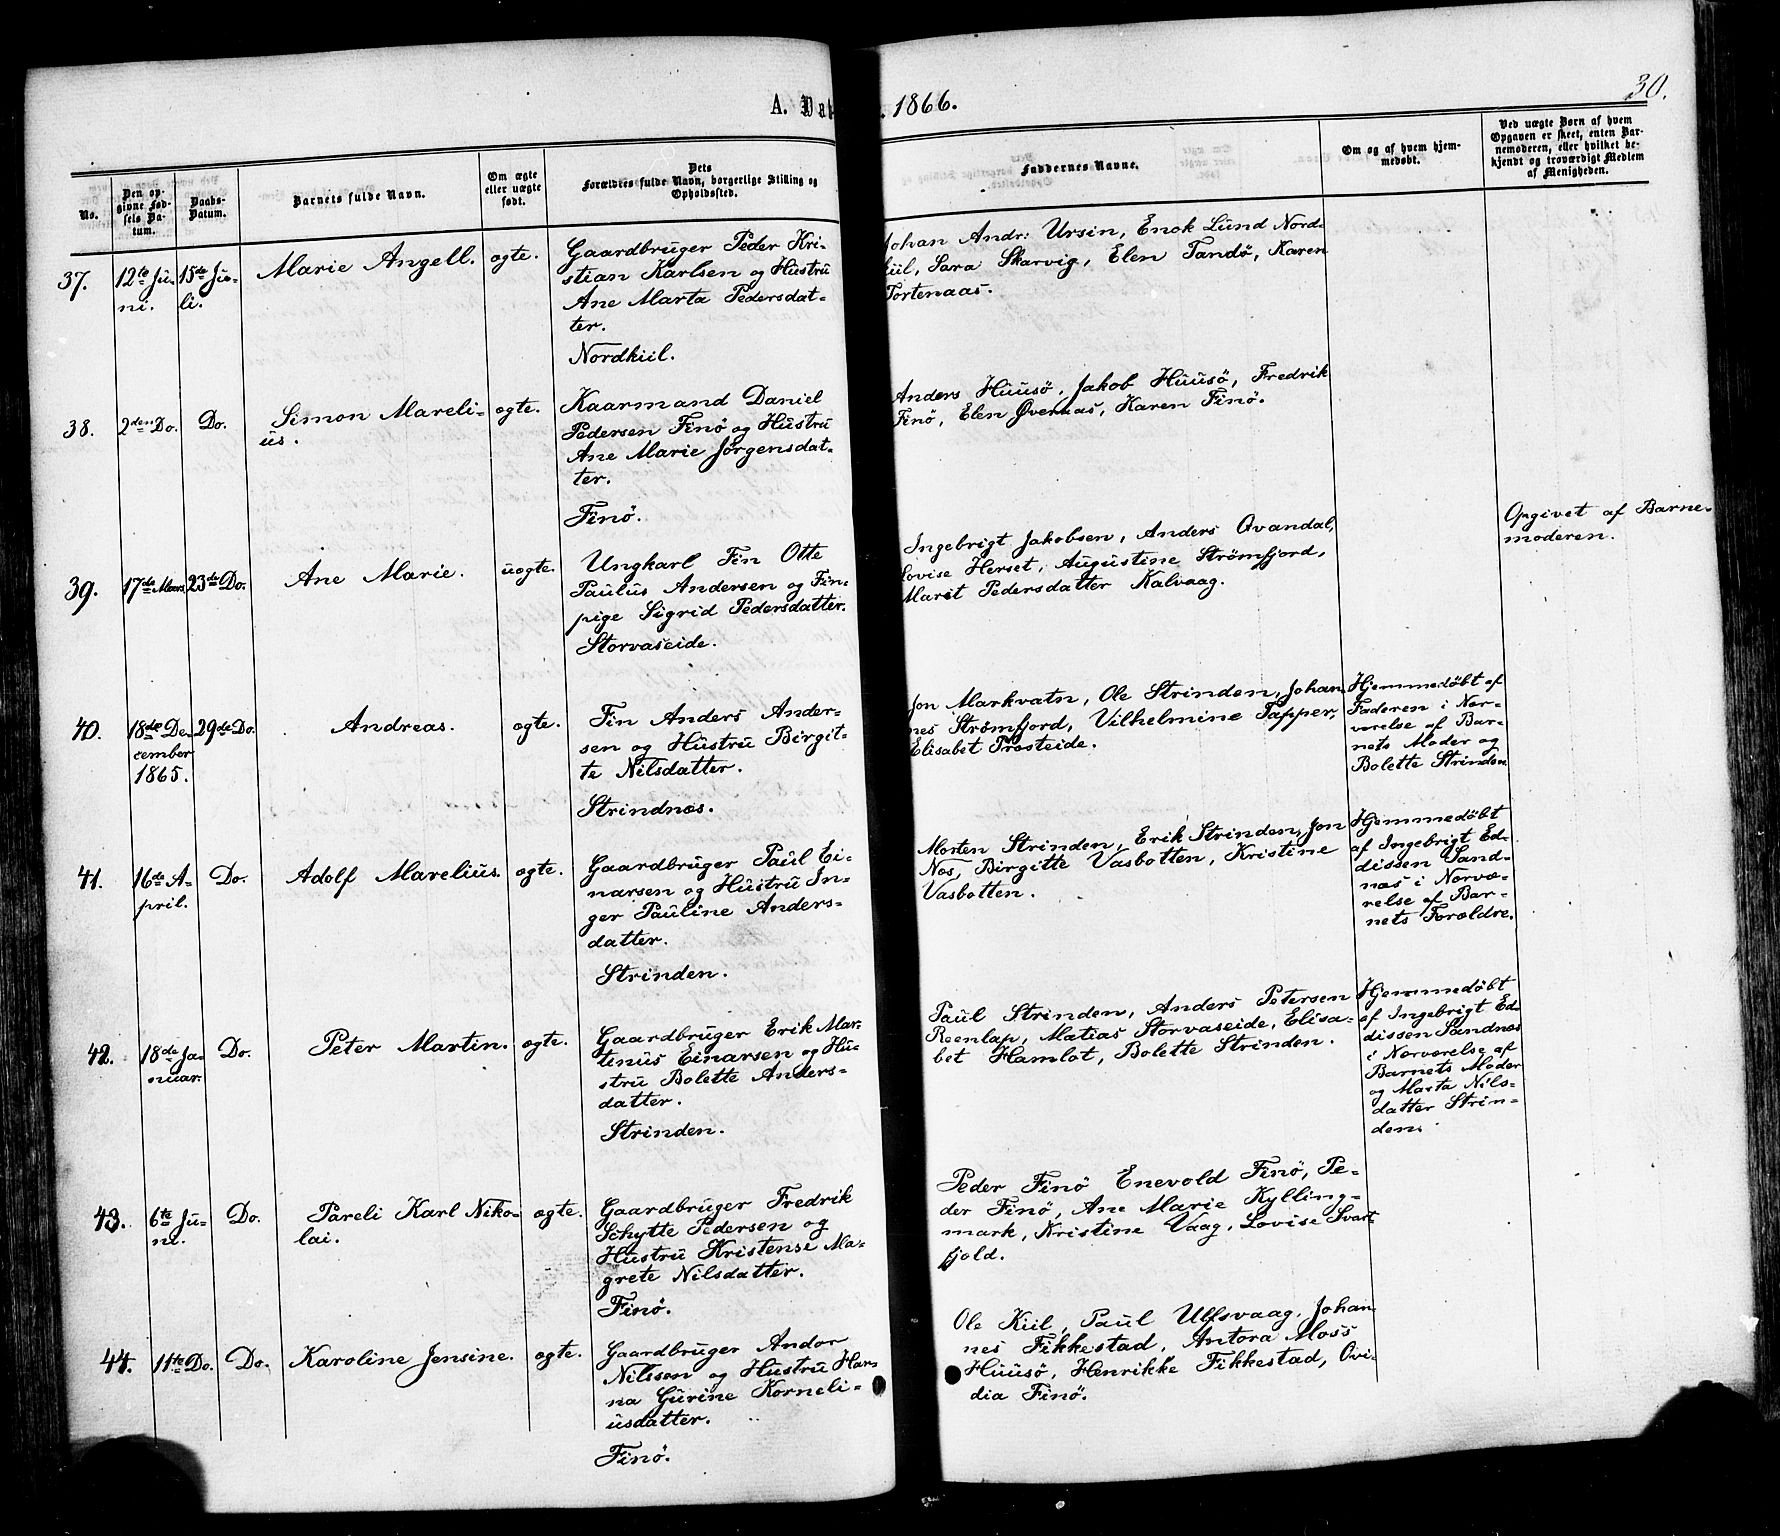 A. Dåb. 1866.
30.
No.
Den op-
givne Fød-
sels Da-
tum.
Daabs-
Datum.
Barnets fulde Navn.
Om ægte
eller uægte
født.
Dets
Forældres fulde Navn, borgerlige Stilling og
Opholdssted.
Faddernes Navne.
Om og af hvem hjem-
medøbt.
Ved uægte Børn af hvem
Opgaven er skeet, enten Bar-
nemoderen, eller hvilket be-
kjendt og troværdigt Medlem
af Menigheden.
37.
12te Ju-
ni.
15de Ju-
li.
Marie Angell.
ægte.
Gaardbruger Peder Kri-
stian Karlsen og Hustru
Ane Marta Pedersdat-
ter.
Nordkiil.
Johan Andr: Ursin, Enok Lund Nord-
kiil, Sara Skarvig, Elen Tandø, Karen
Tortenaas.
38.
2den Do.
Do.
Simon Mareli-
us.
ægte.
Kaarmand Daniel
Pedersen Finø og Hustru
Ane Marie Jørgensdat-
ter.
Finø.
Anders Huusø, Jakob Huusø, Fredrik
Finø, Elen Øvernæs, Karen Finø.
39.
17de Marts
23de Do.
Ane Marie.
uægte.
Ungkarl Fin Otte
Paulus Andersen og Fin-
pige Sigrid Pedersdatter.
Storvaseide.
Ingebrigt Jakobsen, Anders Qvandal,
Lovise Herset, Augustine Strømfjord,
Marit Pedersdatter Kalvaag.
Opgivet af Barne-
moderen.
40.
18de De-
cember
1865.
29de Do.
Andreas.
ægte.
Fin Anders Ander-
sen og Hustru Birgit-
te Nilsdatter.
Strindnæs.
Jon Markvatn, Ole Strinden, Johan-
nes Strømfjord, Vilhelmine Tapper,
Elisabet Prosteide.
Hjemmedøbt af
Faderen i Nær-
værelse af Bar-
nets Moder og
Bolette Strinden
41.
16de A-
pril.
Do.
Adolf Marelius.
ægte.
Gaardbruger Paul Ei-
narsen og Hustru In-
ger Pauline Anders-
datter.
Strinden.
Morten Strinden, Erik Strinden, Jon
Næs, Birgitte Vasbotten, Kristine
Vasbotten.
Hjemmedøbt
af Ingebrigt Ed-
dissen Sand-
næs i Nærvæ-
relse af Bar-
nets Forældre.
42.
18de Ja-
nuar.
Do.
Peter Martin.
ægte.
Gaardbruger Erik Mar-
tinus Einarsen og Hu-
stru Bolette Anders-
datter.
Strinden.
Paul Strinden, Anders Petersen
Reenlap, Matias Storvaseide, Elisa-
bet Hamlot, Bolette Strinden.
Hjemmedøbt
af Ingebrigt Ed-
dissen Sandnæs
i Nærværelse af
Barnets Moder
og Marta Nils-
datter Strin-
den.
43.
6te Ju-
ni.
Do.
Pareli Karl Niko-
lai.
ægte.
Gaardbruger Fredrik
Schytte Pedersen og
Hustru Kristense Ma-
grete Nilsdatter.
Finø.
Peder Finø Enevold Finø, Pe-
der Finø, Ane Marie Kylling-
mark, Kristine Vaag, Lovise Svart-
fjeld.
44.
11te Do.
Do.
Karoline Jensine.
ægte.
Gaardbruger Andor
Nilssen og Hustru Han-
na Gurine Korneli-
usdatter.
Finø.
Ole Kiil, Paul Ulfsvaag, Johan-
nes Fikkestad, Antora Moss
Huusø, Henrikke Fikkestad, Ovi-
dia Finø.